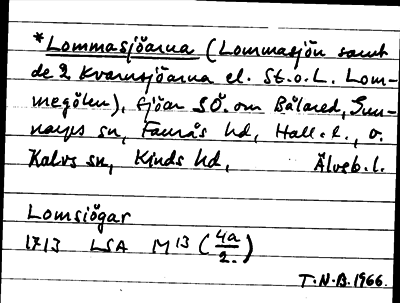 *Lommasjöarna (Lommasjön samt
de 2 Kvarnsjöarna el. St. o. L. Lom-
megölen), sjöar SÖ. om Bålared, Sun-
narps sn, Faurås hd, Hall. l., o.
Kalvs sn, Kinds hd, Älvsb. l.
Lomsiögar
1713 LSA M 13 (4a/2.)
T.N.B. 1966.